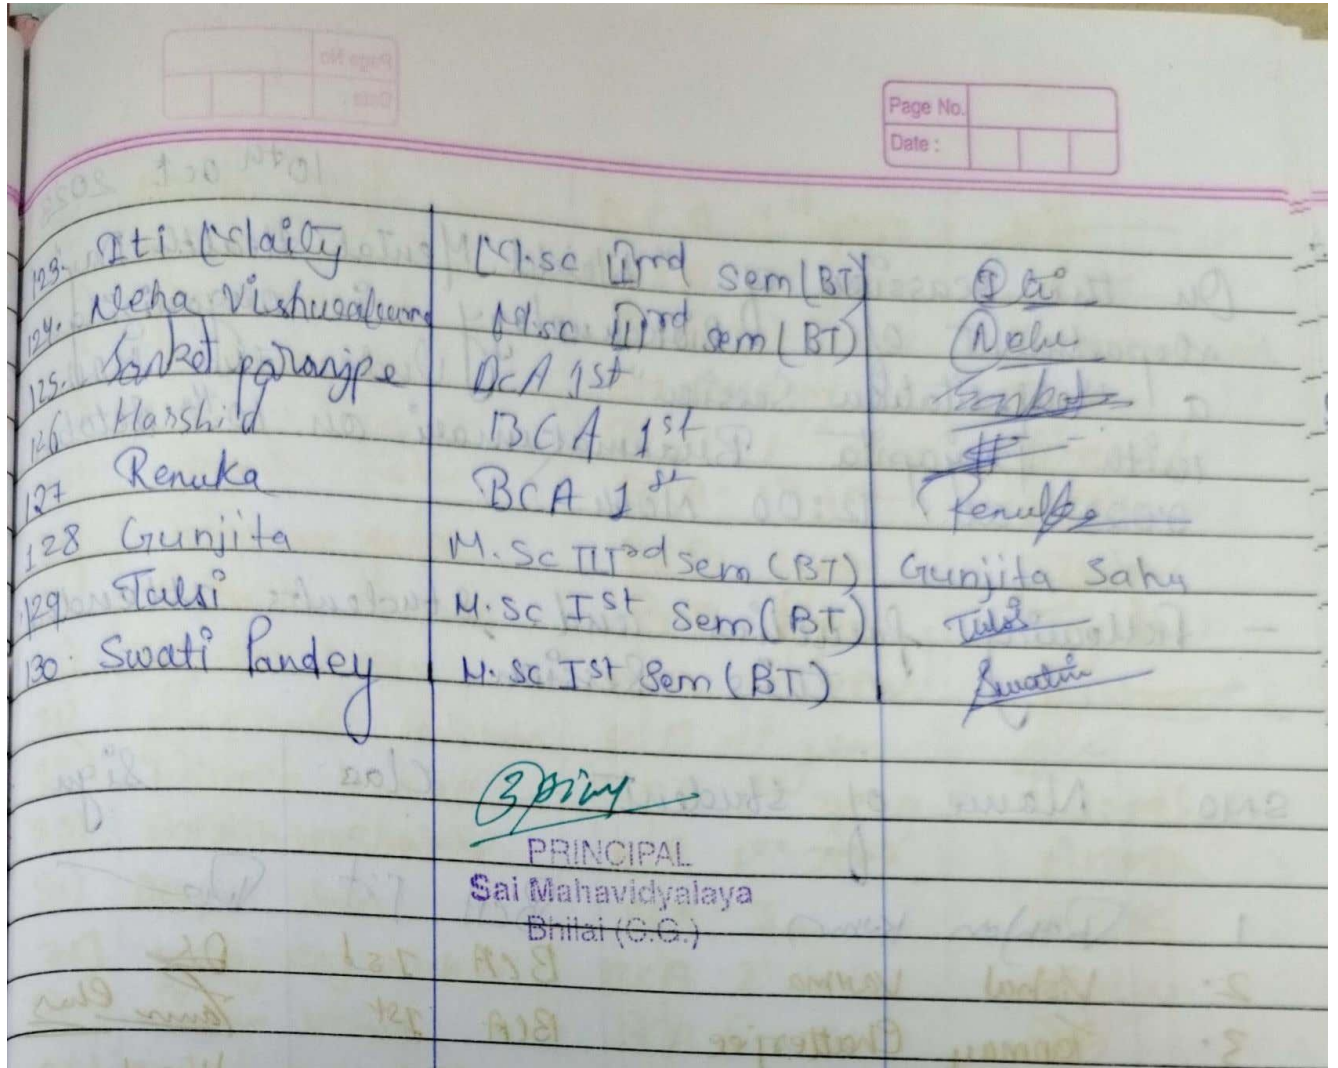 Page No.
Date :
123. Iti Maity M.sc IIIrd sem (BT) Iti
124. Neha Vishwakarma M.sc IIIrd sem (BT) Neha
125. Sanket paranjpe DCA 1st Sanket
126 Harshid BCA 1st
127 Renuka BCA 1st Renuka
128 Gunjita M. Sc IIIrd Sem (BT) Gunjita Sahu
129 Tulsi M. Sc Ist Sem (BT) Tulsi
130. Swati Pandey M. Sc Ist Sem (BT) Swati
PRINCIPAL
Sai Mahavidyalaya
Bhilai (C.G.)